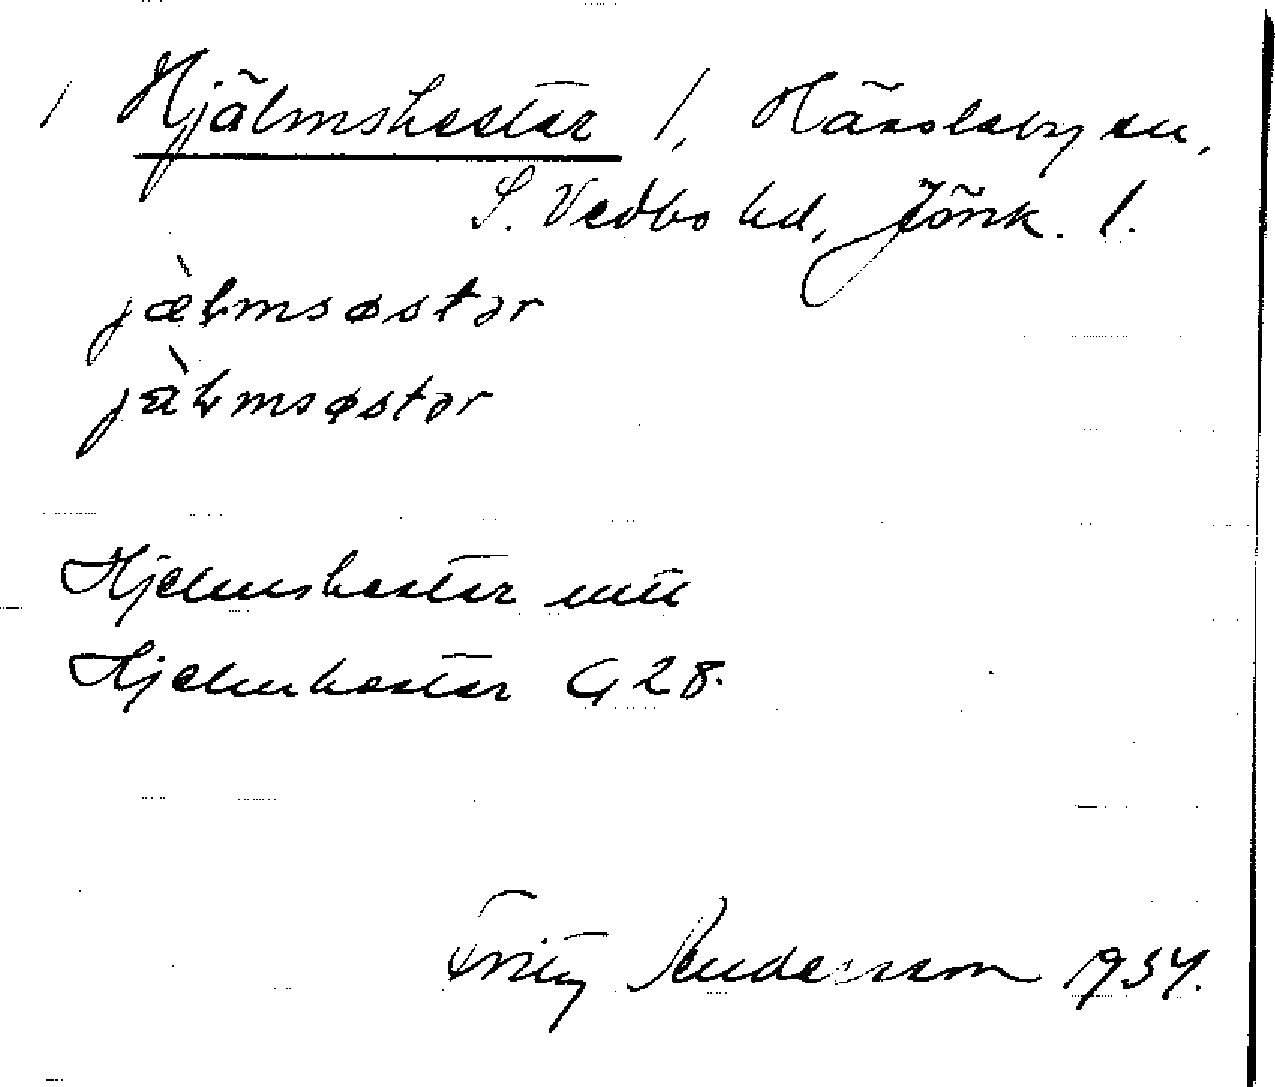 / Hjälmshester /, Hässleby sn,
S. Vedbo hd, Jönk. l.
jæ̀lmsøstər
jàlmsøstər
Hjelmshester
Hjelmhester G 28.
Fritz Andersson 1934.